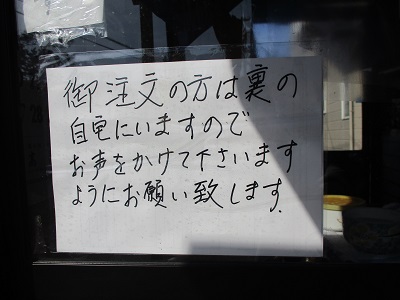 御注文の方は裏の
自宅にいますので
お声をかけて下さいます
ようにお願い致します.